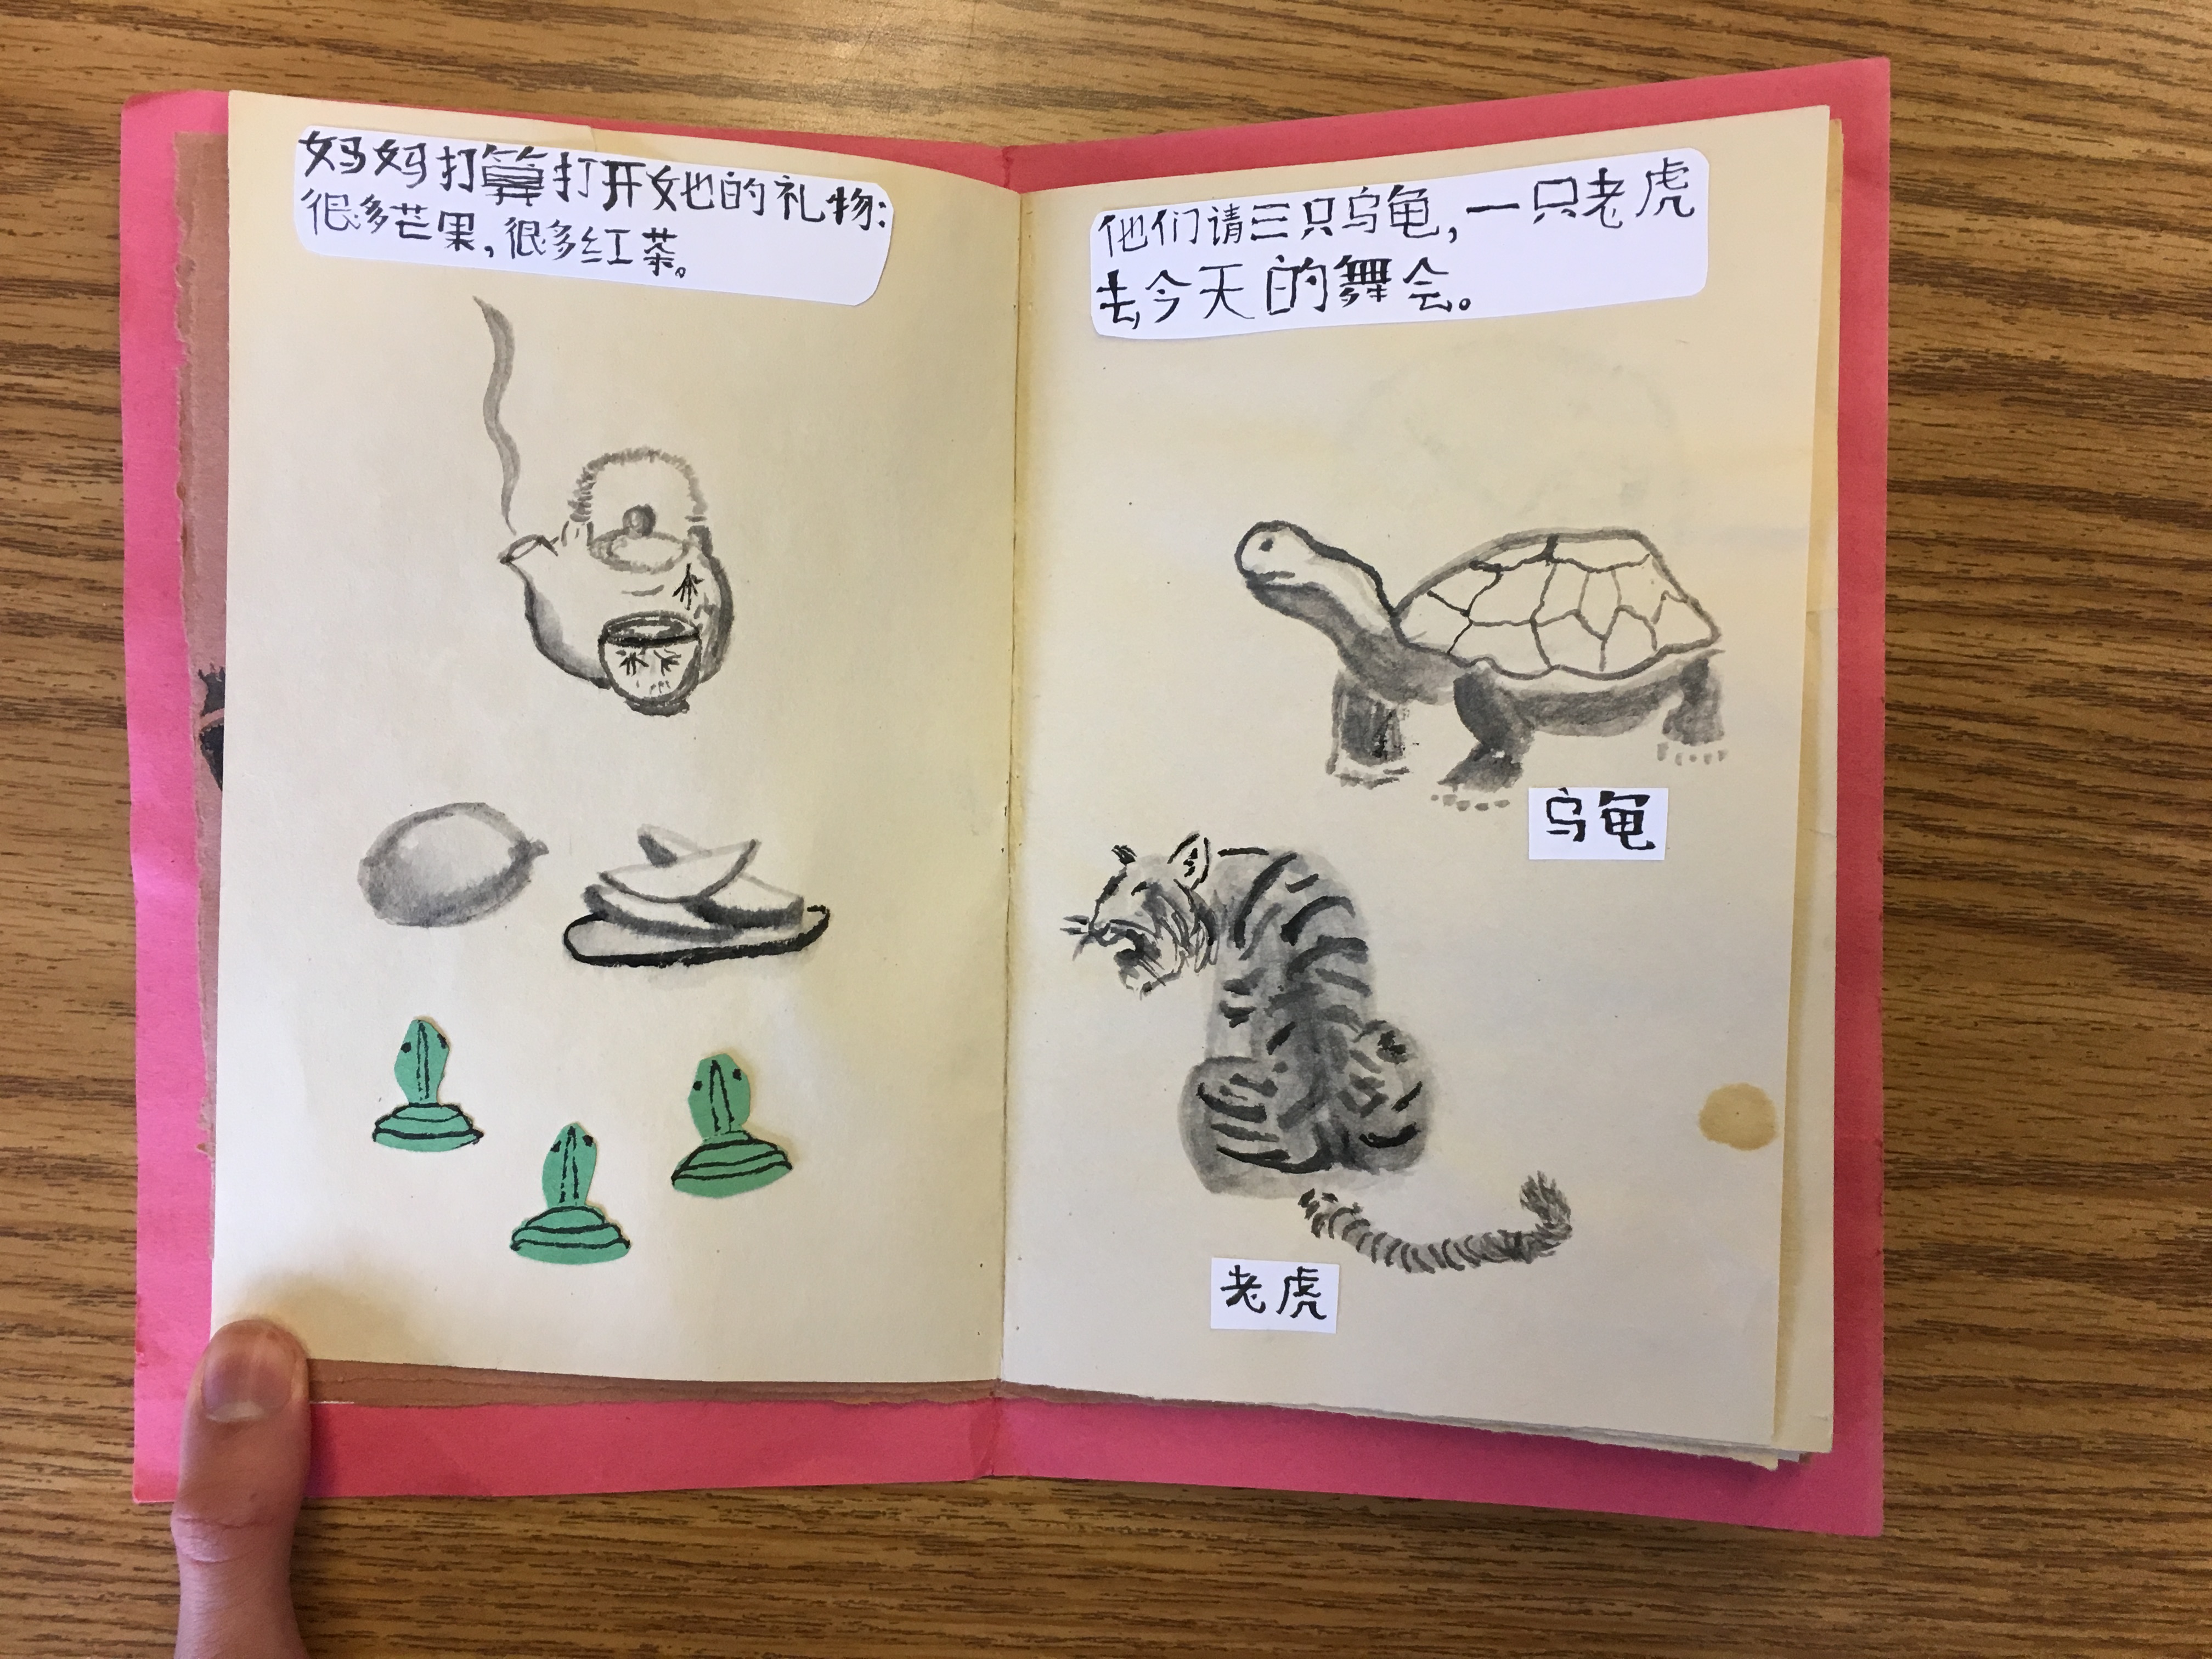 妈妈打算打开她的礼物:
很多芒果,很多红茶。
他们请三只乌龟,一只老虎
去今天的舞会。
乌龟
老虎